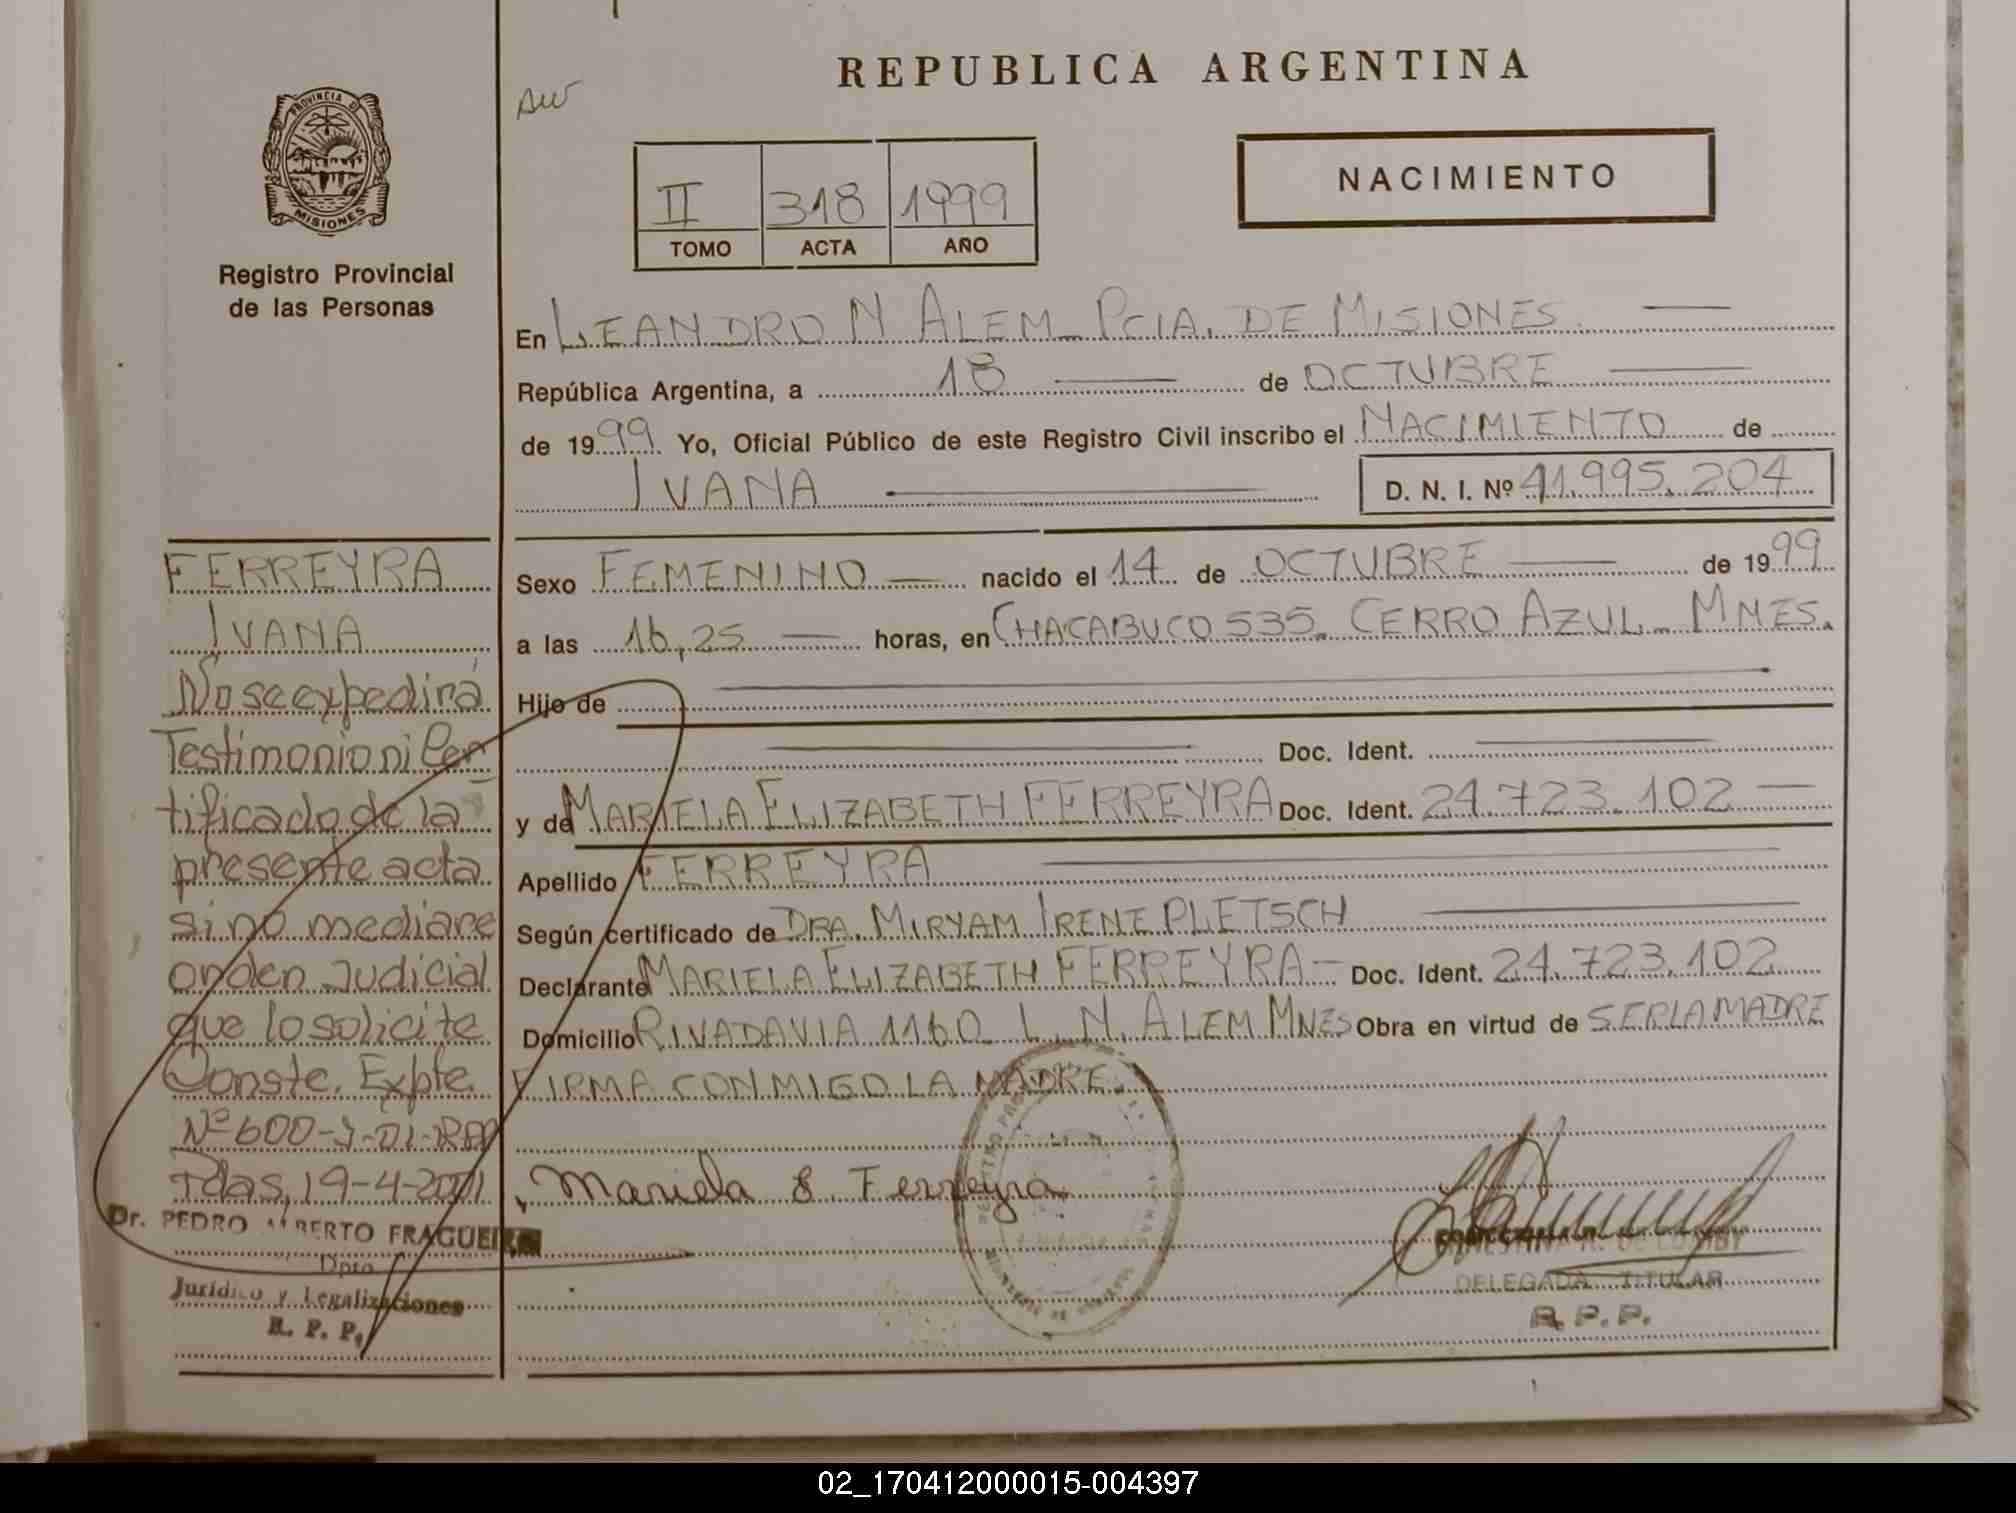 REPUBLICA ARGENTINA
PROVINCIA DE
MISIONES
Registro Provincial
de las Personas
II 318 1999
TOMO ACTA AÑO
NACIMIENTO
En LEANDRO N ALEM PCIA. DE MISIONES
República Argentina, a 18 de OCTUBRE
de 1999 Yo, Oficial Público de este Registro Civil inscribo el NACIMIENTO de
IVANA D. N. I. Nº 41.995.204
Sexo FEMENINO nacido el 14 de OCTUBRE de 1999
a las 16,25 horas, en CHACABUCO 535. CERRO AZUL MNES.
Hijo de
Doc. Ident.
y de MARIELA ELIZABETH FERREYRA Doc. Ident. 24.723.102
Apellido FERREYRA
Según certificado de DRA. MIRYAM IRENE PLETSCH
Declarante MARIELA ELIZABETH FERREYRA Doc. Ident. 24.723.102
Domicilio RIVADAVIA 1160 L. N. ALEM MNES Obra en virtud de SER LA MADRE
FIRMA CONMIGO LA MADRE.
Mariela E. Ferreyra
DELEGADA TITULAR
R. P. P.
FERREYRA
IVANA
No se expedirá
Testimonio ni Cer
tificado de la
presente acta
si no mediare
orden Judicial
que lo solicite
Conste. Expte.
Nº 600-
Pdas, 19-4-2001
Dr. PEDRO ALBERTO
Dpto.
Jurídico y Legalizaciones
R. P. P.
02_170412000015-004397